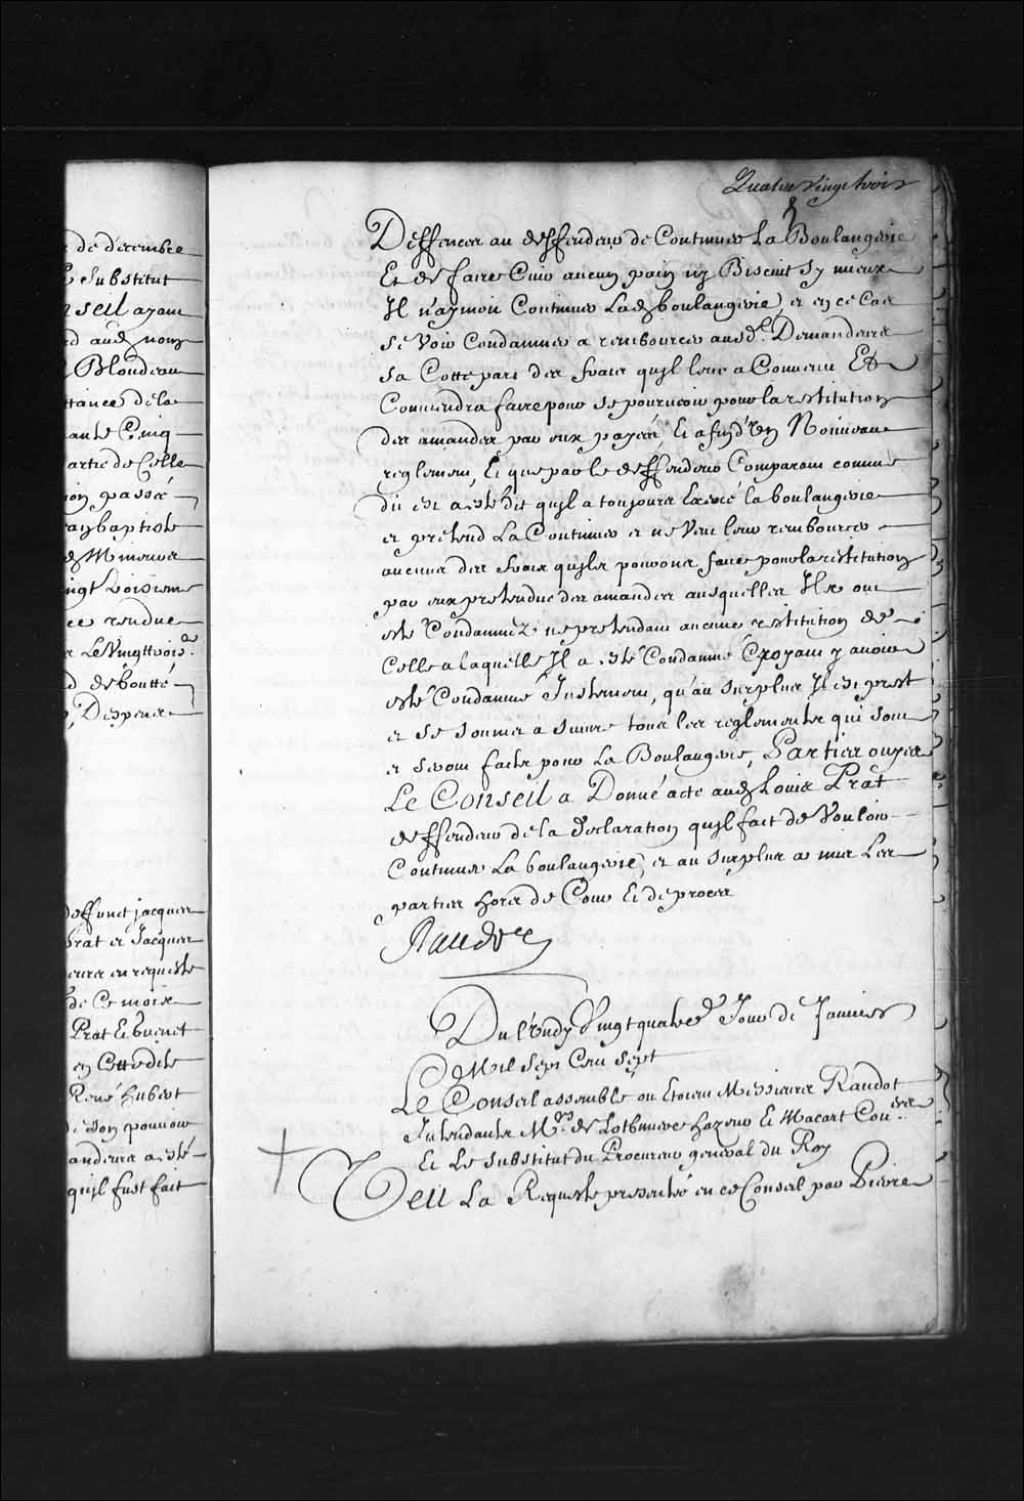 de decembre
Substitut
nseil ayant
aud. nom
Blondeau
ttance dela
Cinq
partie de Celle
ion passé
Jean baptiste
Mineurs
vingt troisieme
ce rendue
Le Vingttrois.e
deboutté
, Despens
deffunct jacques
Prat et Jacques
eurs en requeste
de Ce mois
Prat Et Guenet
en Cette dite
René hubert
de son pouvoir
andeurs a esté
quil fust fait
Quatre Vingt trois
Deffences au deffendeur de Continuer La Boulangerie
Et de faire Cuir aucun pain ny Biscuit sy mieux
Il n'aymoit Continuer Lad. boulangerie et en ce Cas
se Voir Condamner a rembourcer ausd. Demandeurs
sa Cotte part des fraix quil leur a Convenu Et
Conviendra faire pour se pourvoir pour la restitution
des amandes par eux payeés Et afin d'un Nouveau
reglement, Et que par le deffendeur Comparant comme
dit est a esté dit quil a toujours Exercé la boulangerie
et pretend La Continuer et ne Veut leur rembourcer
aucuns des fraix quils pouront faire pour la restitution
par eux pretendue des amandes ausquelles Ils ont
esté Condamnéz ne pretendant aucune restitution de
Celle a laquelle Il a esté Condamné Croyant y avoir
esté Condamné Justement, qu'au surplus Il est prest
et se soumet a suivre tous les reglements qui sont
et seront faits pour La Boulangerie, Parties ouyes
Le Conseil a Donné acte aud. Louis Prat
deffendeur de la declaration quil fait de Vouloir
Continuer La boulangerie, et au surplus a mis Les
parties hors de Cour Et de procés
Raudot
Du Lundy Vingt quatre.e Jour de Janvier
Mil Sept Cent sept
Le Conseil assemblé ou Etoient Messieurs Raudot
Intendants M.rs de Lotbiniere hazeur Et Macart Con.ers
Et Le substitut du Procureur general du Roy
Veu La Requeste presentée en ce Conseil par Pierre